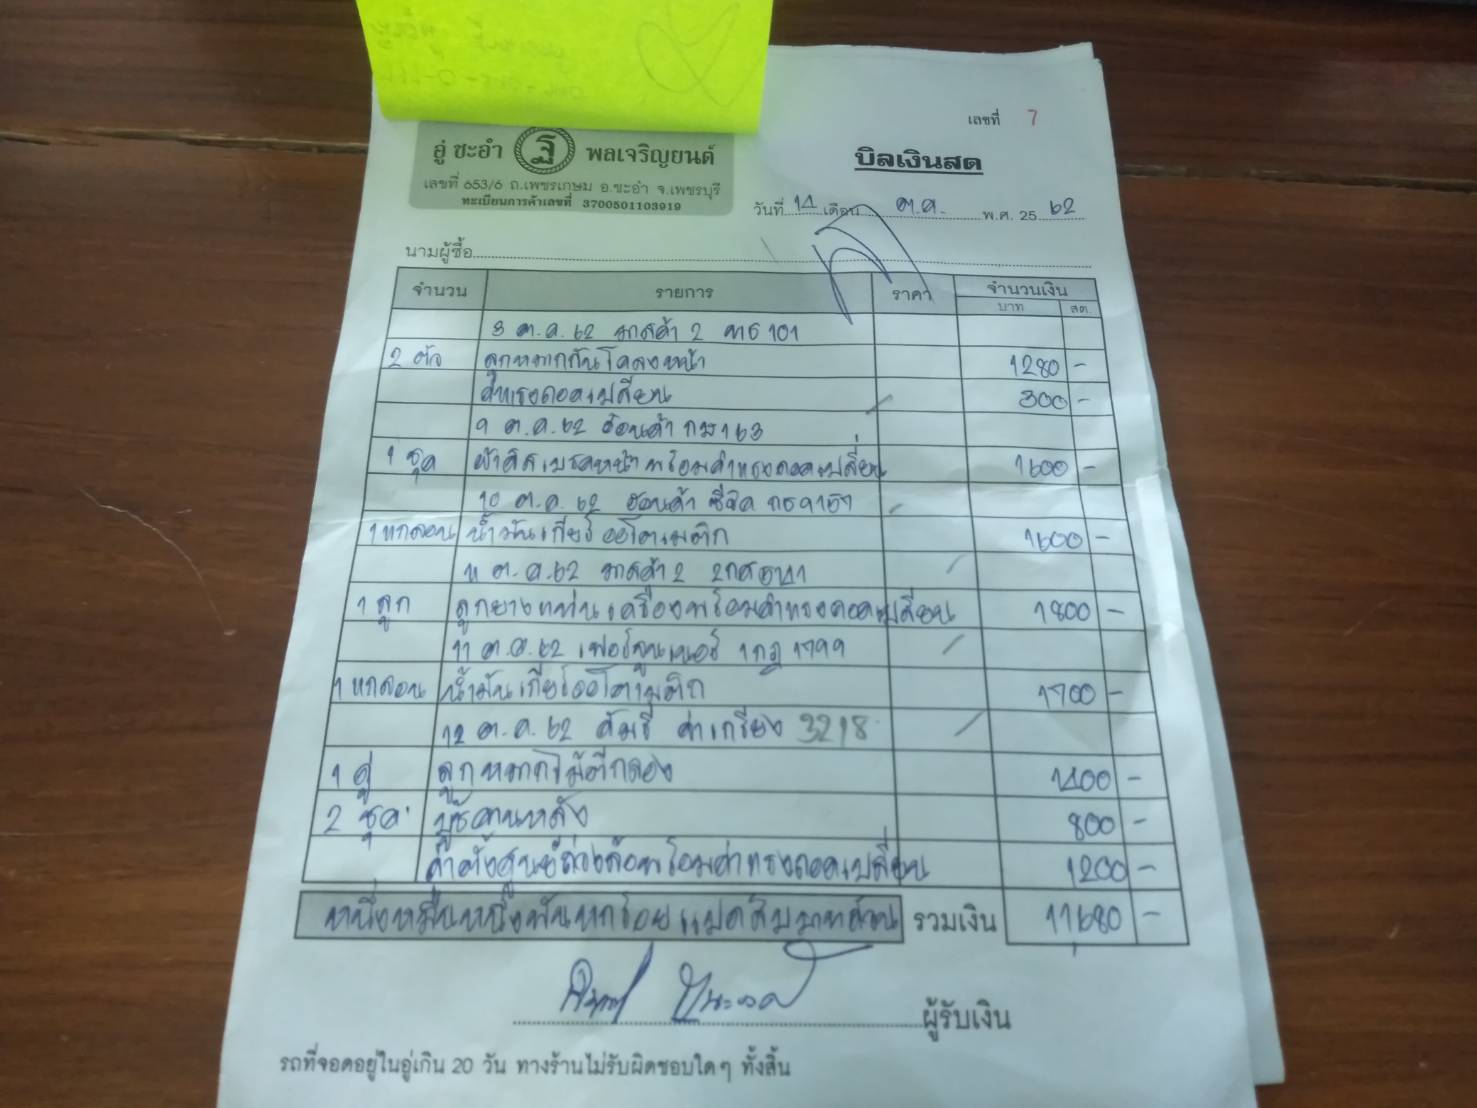 เลขที่ 7
อู่ ชะอำ ฐ พลเจริญยนต์
บิลเงินสด
เลขที่ 653/6 ถ.เพชรเกษม อ.ชะอำ จ.เพชรบุรี
ทะเบียนการค้าเลขที่ 3700501103919
วันที่ 14 เดือน ต.ค. พ.ศ. 25 62
นามผู้ซื้อ
จำนวน รายการ ราคา จำนวนเงิน
บาท สต.
8 ต.ค. 62 มาสด้า 2 101
2 ตัว ลูกหมากกันโคลงหน้า 1280 -
ค่าแรงถอดเปลี่ยน 300 -
9 ต.ค. 62 ฮอนด้า กม 163
1 ชุด ผ้าดิสเบรคหน้าพร้อมค่าแรงถอดเปลี่ยน 1600 -
10 ต.ค. 62 ฮอนด้า ซีวิค
1 แกลอน น้ำมันเกียร์ออโตเมติก 1600 -
11 ต.ค. 62 มาสด้า 2
1 ลูก ลูกยางแท่นเครื่องพร้อมค่าแรงถอดเปลี่ยน 1800 -
11 ต.ค. 62 เฟอร์จูนเนอร์ 1กฎ 1799
1 แกลอน น้ำมันเกียร์ออโตเมติก 1700 -
12 ต.ค. 62 คัมรี่ 3218
1 คู่ ลูกหมากไม้ตีกลอง 1400 -
2 ชุด บู๊ชคานหลัง 800 -
ค่าตั้งศูนย์ถ่วงล้อพร้อมค่าแรงถอดเปลี่ยน 1200 -
หนึ่งหมื่นหนึ่งพันหกร้อยแปดสิบบาทถ้วน รวมเงิน 11680 -
ผู้รับเงิน
รถที่จอดอยู่ในอู่เกิน 20 วัน ทางร้านไม่รับผิดชอบใดๆ ทั้งสิ้น